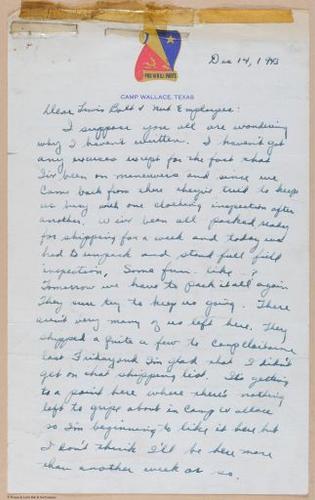 CAMP WALLACE, TEXAS
Dec 14, 1943
Dear Lewis Bolt & Nut Employees:
I suppose you all are wondering
why I haven't written. I haven't got
any excuses except for the fact that
I've been on maneuvers and since we
came back from there they've tried to keep
us busy with one clothing inspection after
another. We've been all packed ready
for shipping for a week and today we
had to unpack and stand full field
inspection, Some fun - like - ?
Tomorrow we have to pack it all again
They sure try to keep us going. There
aren't very many of us left here. They
shipped a quite a few to Camp Claiborne
last Friday and I'm glad that I didn't
get on that shipping list. Its getting
to a point here where there's nothing
left to gripe about in Camp Wallace
so I'm beginning to like it here but
I don't think I'll be here more
than another week or so.